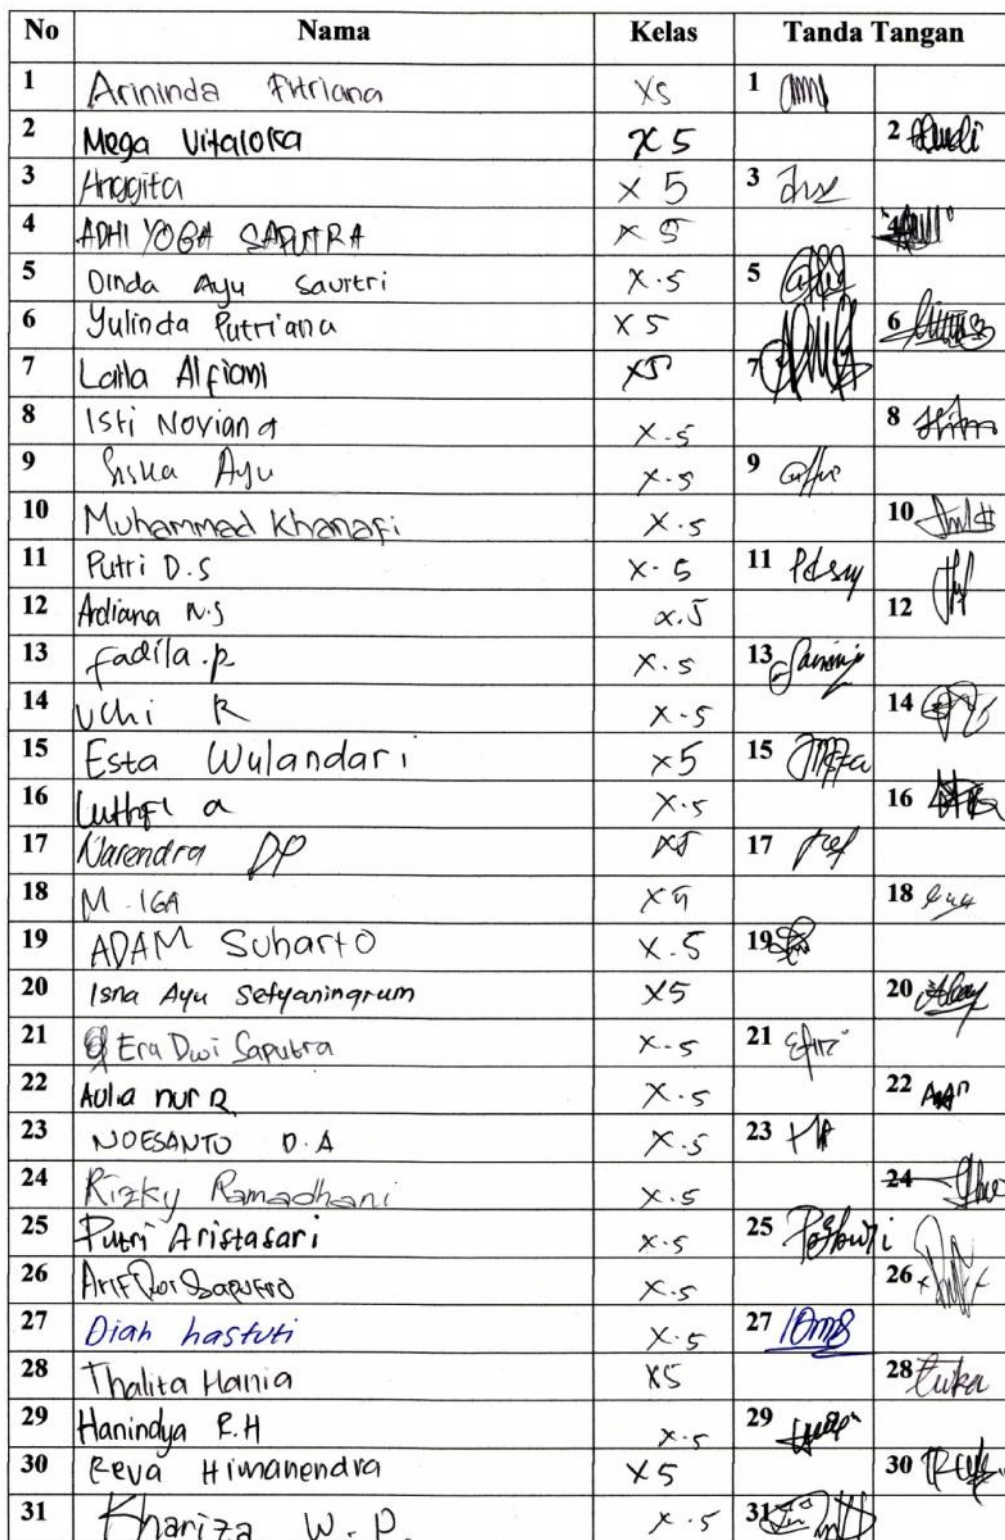 No Nama Kelas Tanda Tangan
1 Arininda Fitriana X5 1
2 Mega Vitaloka X 5 2
3 Anggita X 5 3
4 ADHI YOGA SAPUTRA X 5 4
5 Dinda Ayu Saurtri X.5 5
6 Yulinda Putriana X 5 6
7 Laila Alfiani X5 7
8 Isti Noviana X.5 8
9 Siska Ayu X.5 9
10 Muhammad Khanafi X.5 10
11 Putri D.S X.5 11
12 Ardiana N.S X.5 12
13 Fadila.p X.5 13
14 Uchi R X.5 14
15 Esta Wulandari X5 15
16 Luthfi a X.5 16
17 Narendra DP X5 17
18 M. IGA X5 18
19 ADAM Suharto X.5 19
20 Isna Ayu Setyaningrum X5 20
21 Era Dwi Saputra X.5 21
22 Aulia nur R X.5 22
23 NOESANTO D.A X.5 23
24 Rizky Ramadhani X.5 24
25 Putri Aristasari X.5 25
26 Arif Dwi Saputro X.5 26
27 Diah hastuti X.5 27
28 Thalita Hania X5 28
29 Hanindya R.H X.5 29
30 Reva Himanendra X5 30
31 Khariza W.P. X.5 31